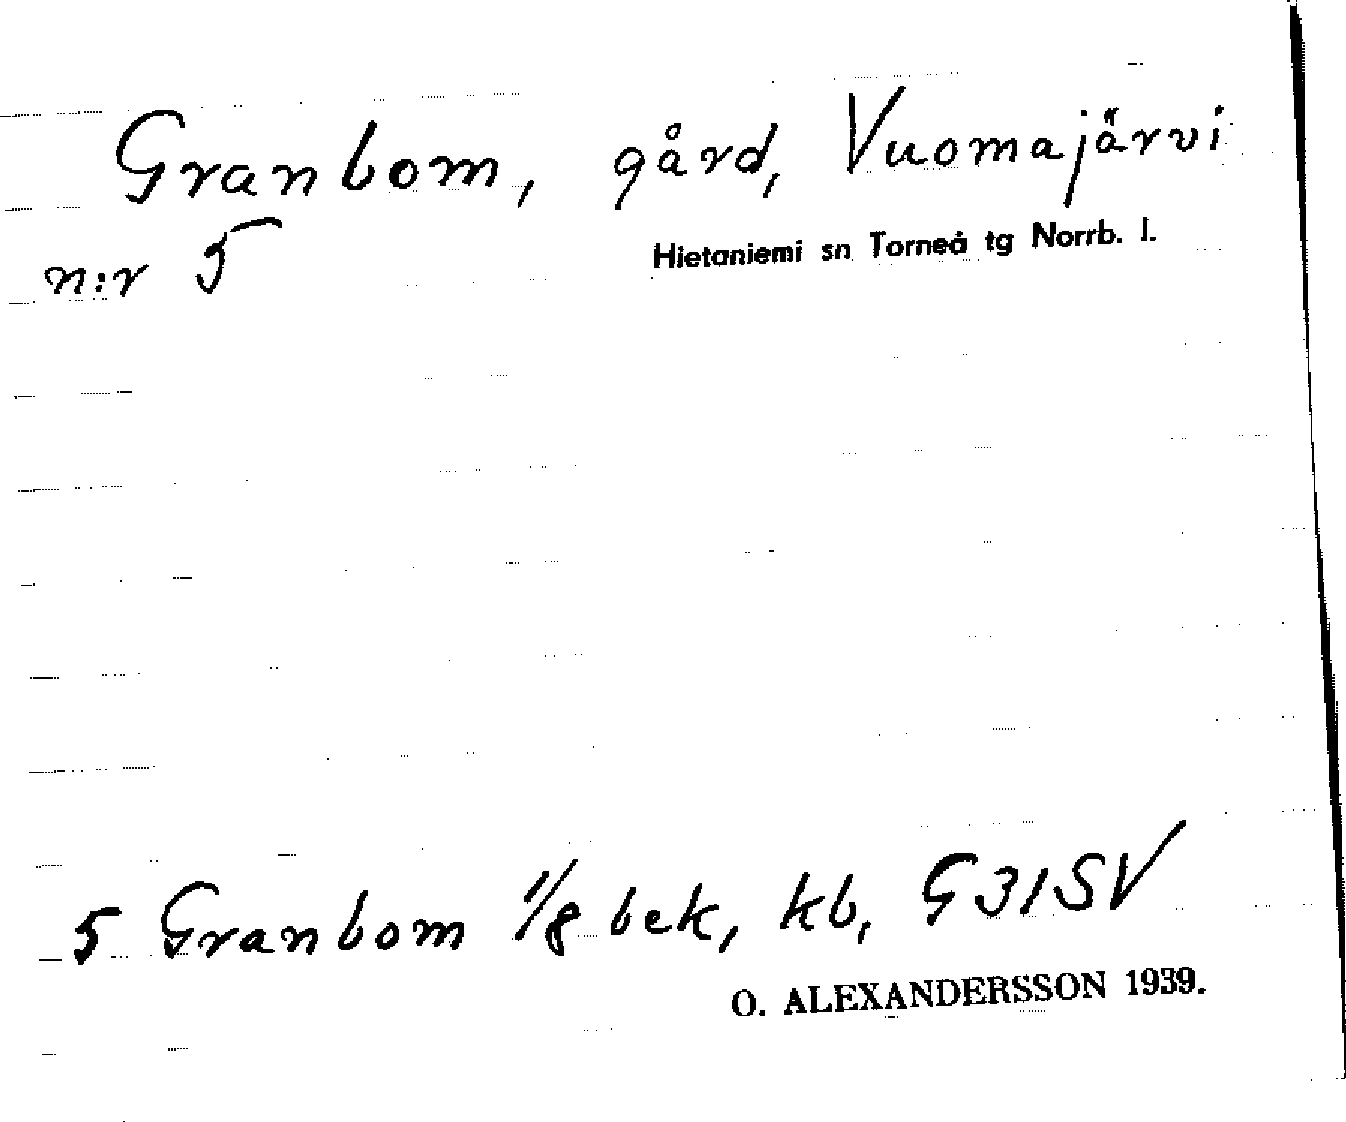 Granbom, gård, Vuomajärvi
n:r 5
Hietaniemi sn Torneå tg Norrb. l.
5 Granbom 1/8 bek, kb, G31SV
O. ALEXANDERSSON 1939.